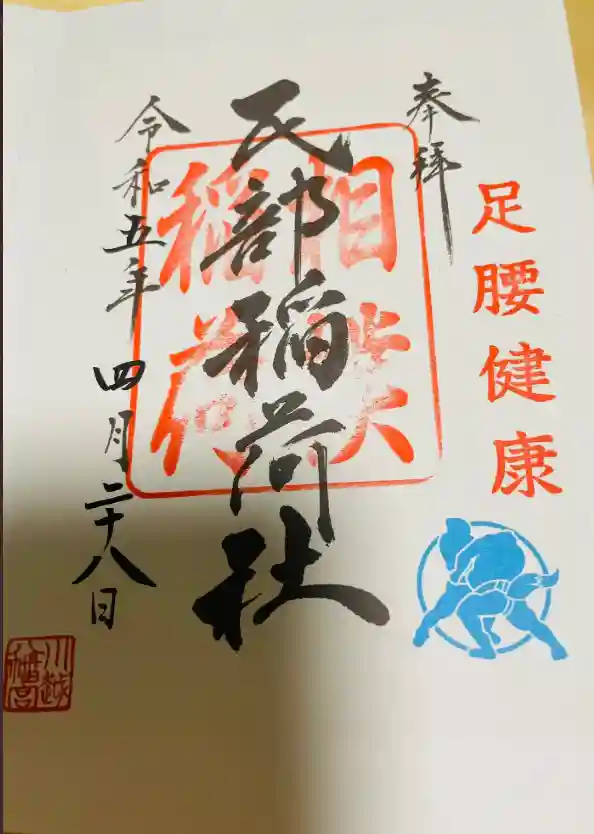 足腰健康
奉拝
相撲
稲荷
民部稲荷社
令和五年四月二十八日
川越
八幡宮